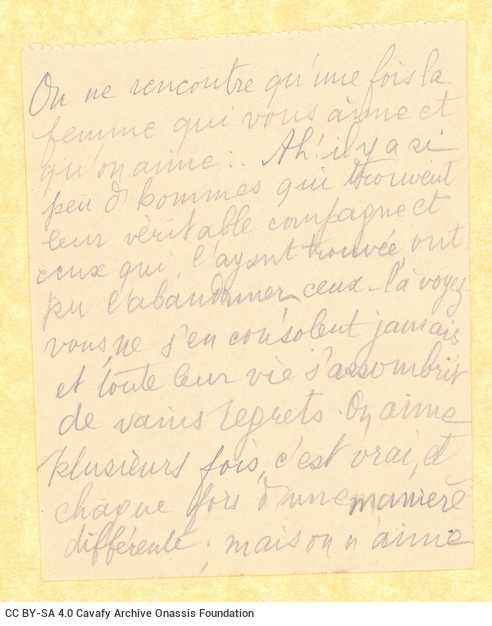 On ne rencontre qu'une fois la
femme qui vous aime et
qu'on aime... Ah! il y a si
peu d'hommes qui trouvent
leur véritable compagne et
ceux qui, l'ayant trouvée, ont
pu l'abandonner, ceux-là voyez
vous, ne s'en consolent jamais
et toute leur vie s'assombrit
de vains regrets. On aime
plusieurs fois, c'est vrai, et
chaque fois d'une manière
différente; mais on n'aime
CC BY-SA 4.0 Cavafy Archive Onassis Foundation